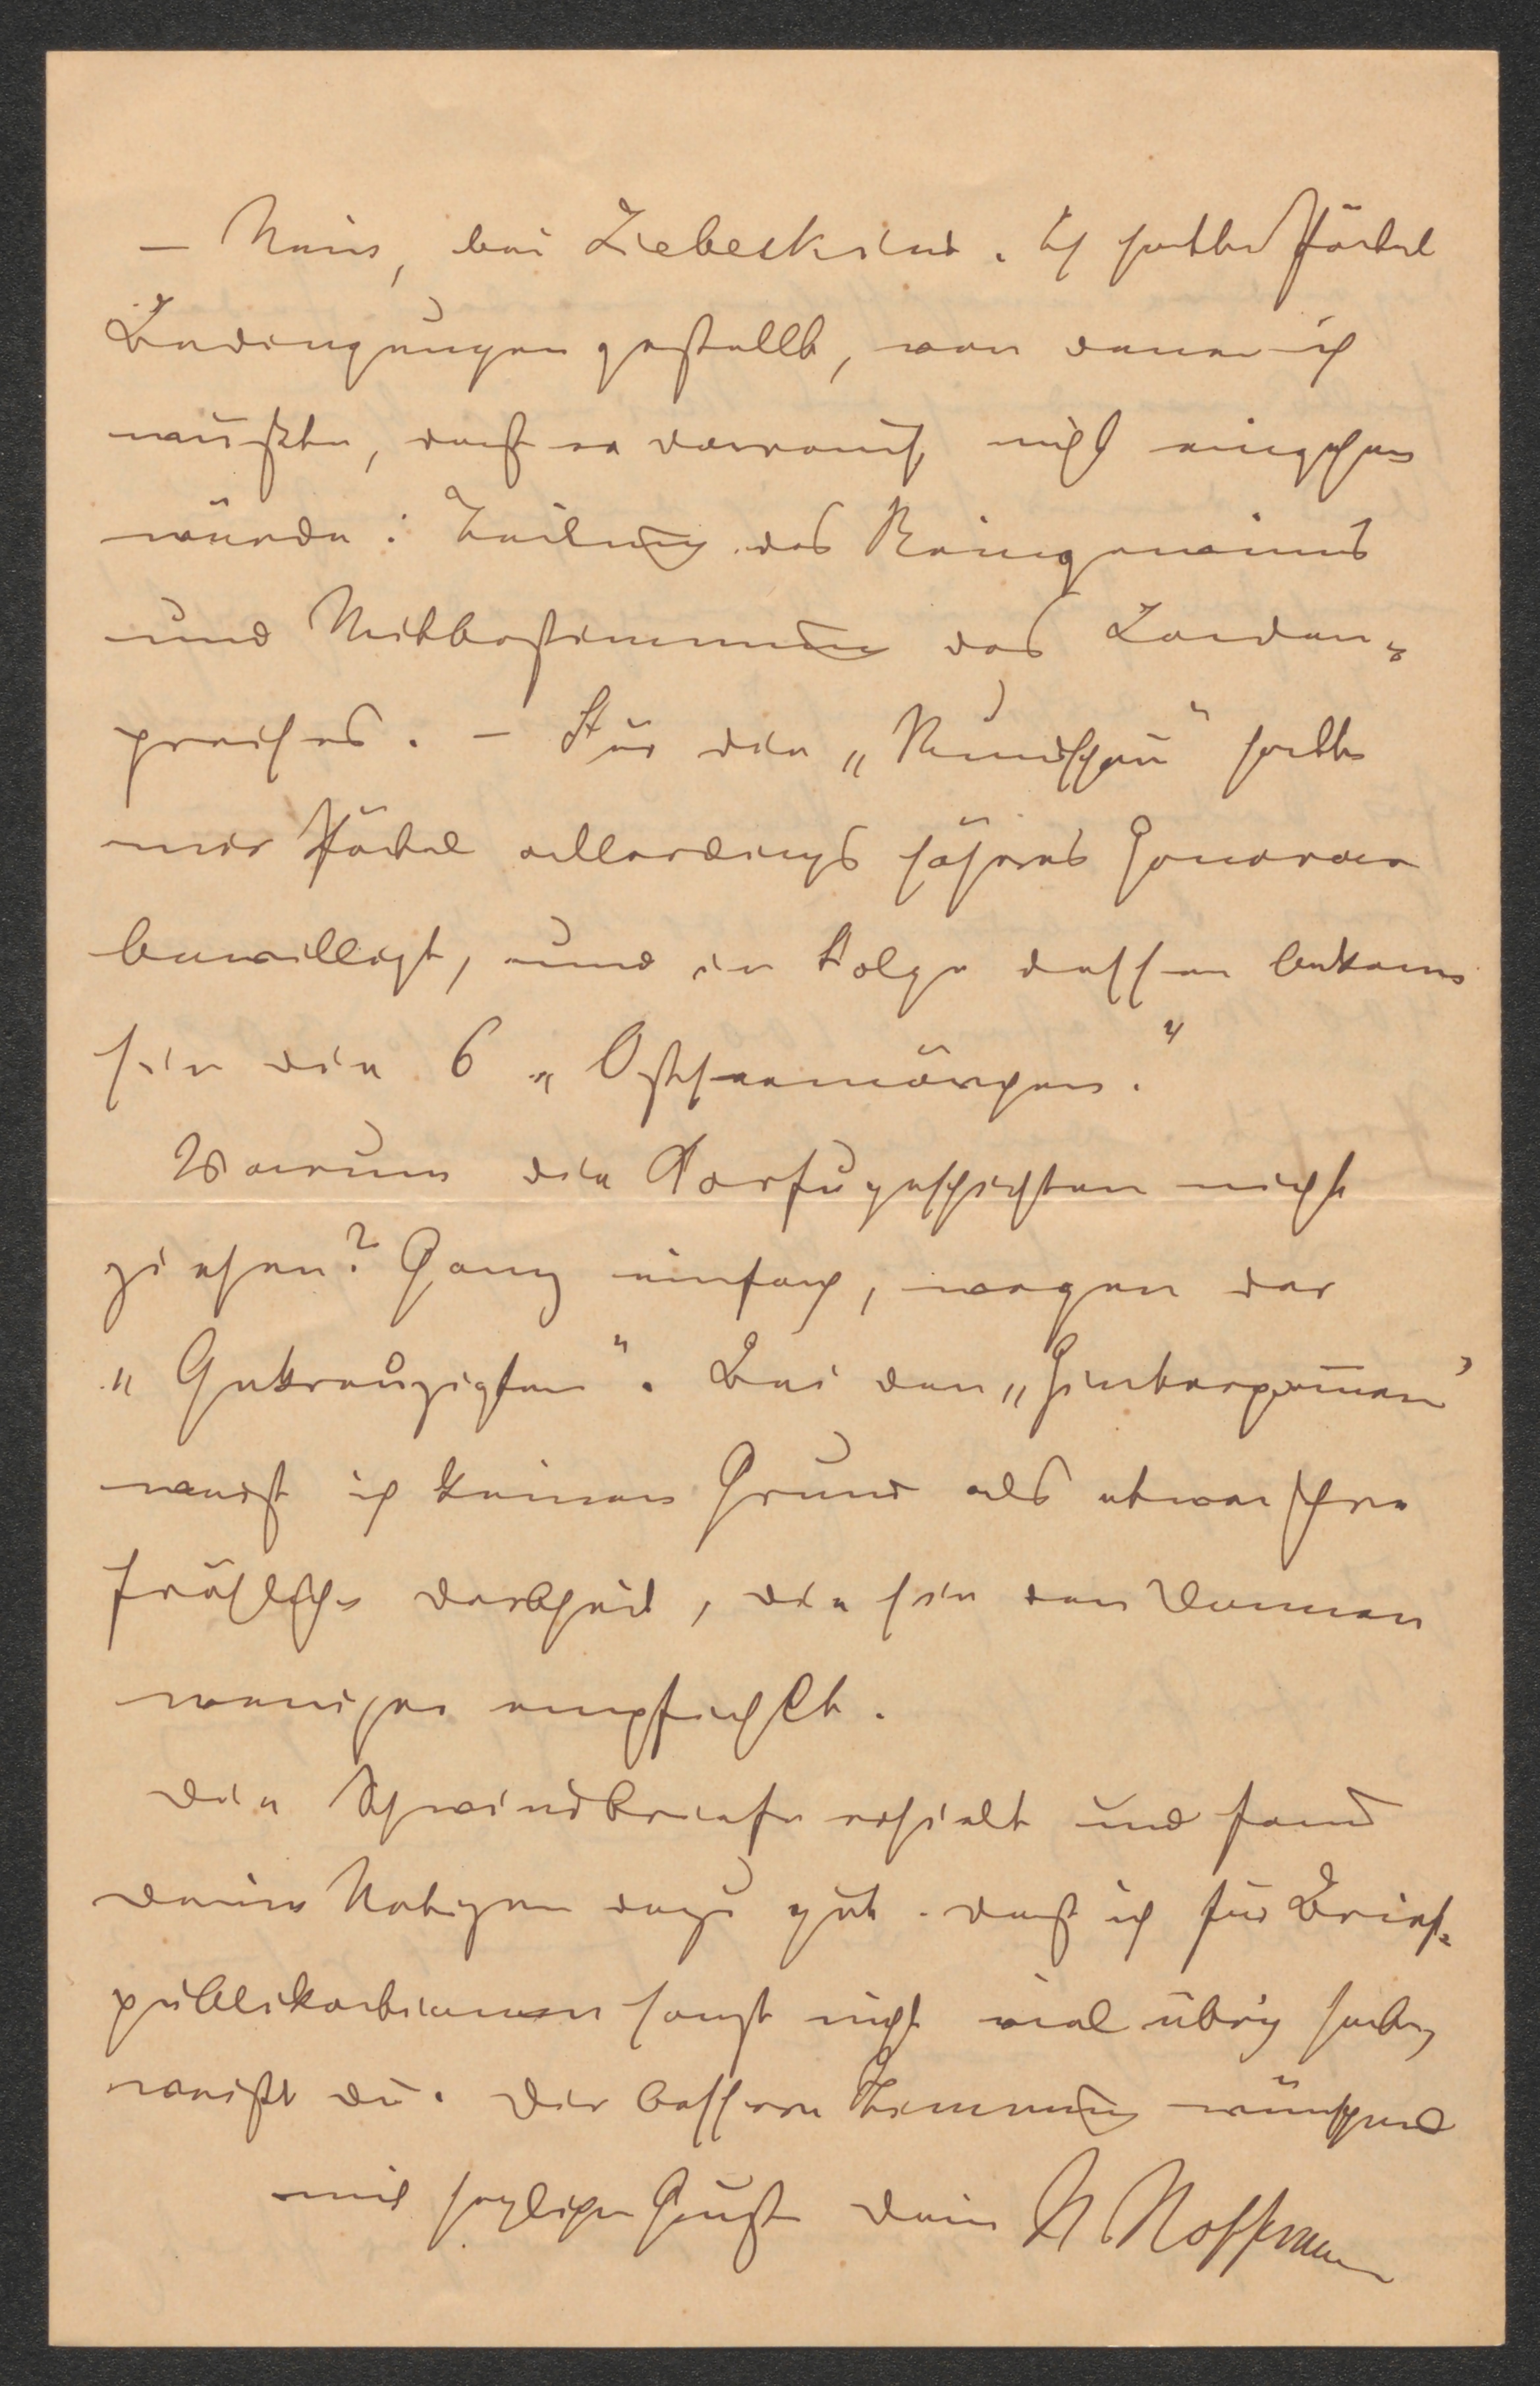 – Nein, bei Liebeskind. Ich hatte Pätel
Bedingungen gestellt, von denen ich
wußte, daß er darauf nicht eingehen
würde: Teilung des Reingewinns
und Mitbestimmung des Laden-
preises. – Für die „Rundschau“ hatte
mir Pätel allerdings höheres Honorar
bewilligt, und in Folge dessen bekam
sie die 6 „Ostseemärchen.“
Warum die Korfugeschichten nicht
ziehen? Ganz einfach, wegen der
„Gekreuzigten“. Bei den
weiß ich keinen Grund als etwa ihre
fröhliche Derbheit, die sie den Damen
weniger empfiehlt.
Die Schwindbriefe erhielt und fand
Deine Notizen dazu gut. Daß ich für Brief-
publikationen sonst nicht viel übrig habe,
weißt Du. Dir bessere Stimmung wünschend
mit herzlichem Gruß Dein H. Hoffmann